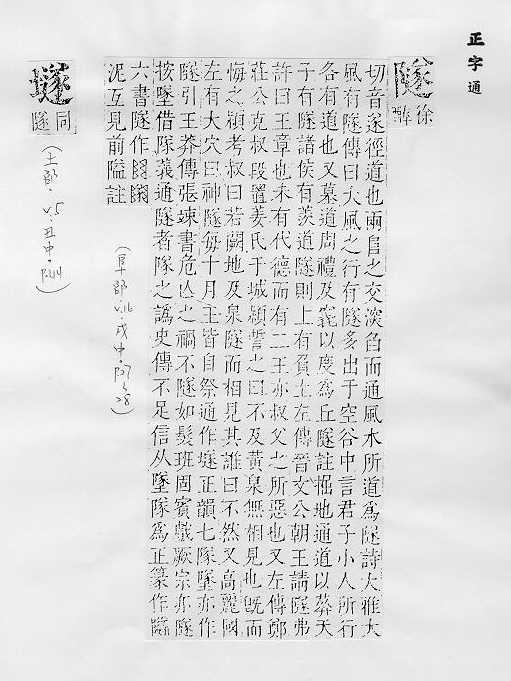 正字通
隧
徐
醉
切音遂徑道也兩𨸏之交深𨸏而通風水所道為隧詩大雅大
風有隧傳曰大風之行有隧多出于空谷中言君子小人所行
各有道也又墓道周禮及竁以度為丘隧註掘地通道以葬天
子有隧諸侯有羨道隧則上有負土左傳晉文公朝王請隧弗
許曰王章也未有代德而有二王亦叔父之所惡也又左傳鄭
莊公克叔段置姜氏于城潁誓之曰不及黃泉無相見也旣而
悔之潁考叔曰若闕地及泉隧而相見其誰曰不然又高麗國
左有大穴曰神隧每十月王皆自祭通作㙇正韻七隊墜亦作
隧引王莽傳張竦書危亾之禍不隧如髮班固賓戲厥宗亦隧
按墜借隊義通隧者隊之譌史傳不足信从墜隊為正篆作
六書隧作
泥互見前隘註
㙇
同
隧
(阜部.戌中.
(土部.丑中.